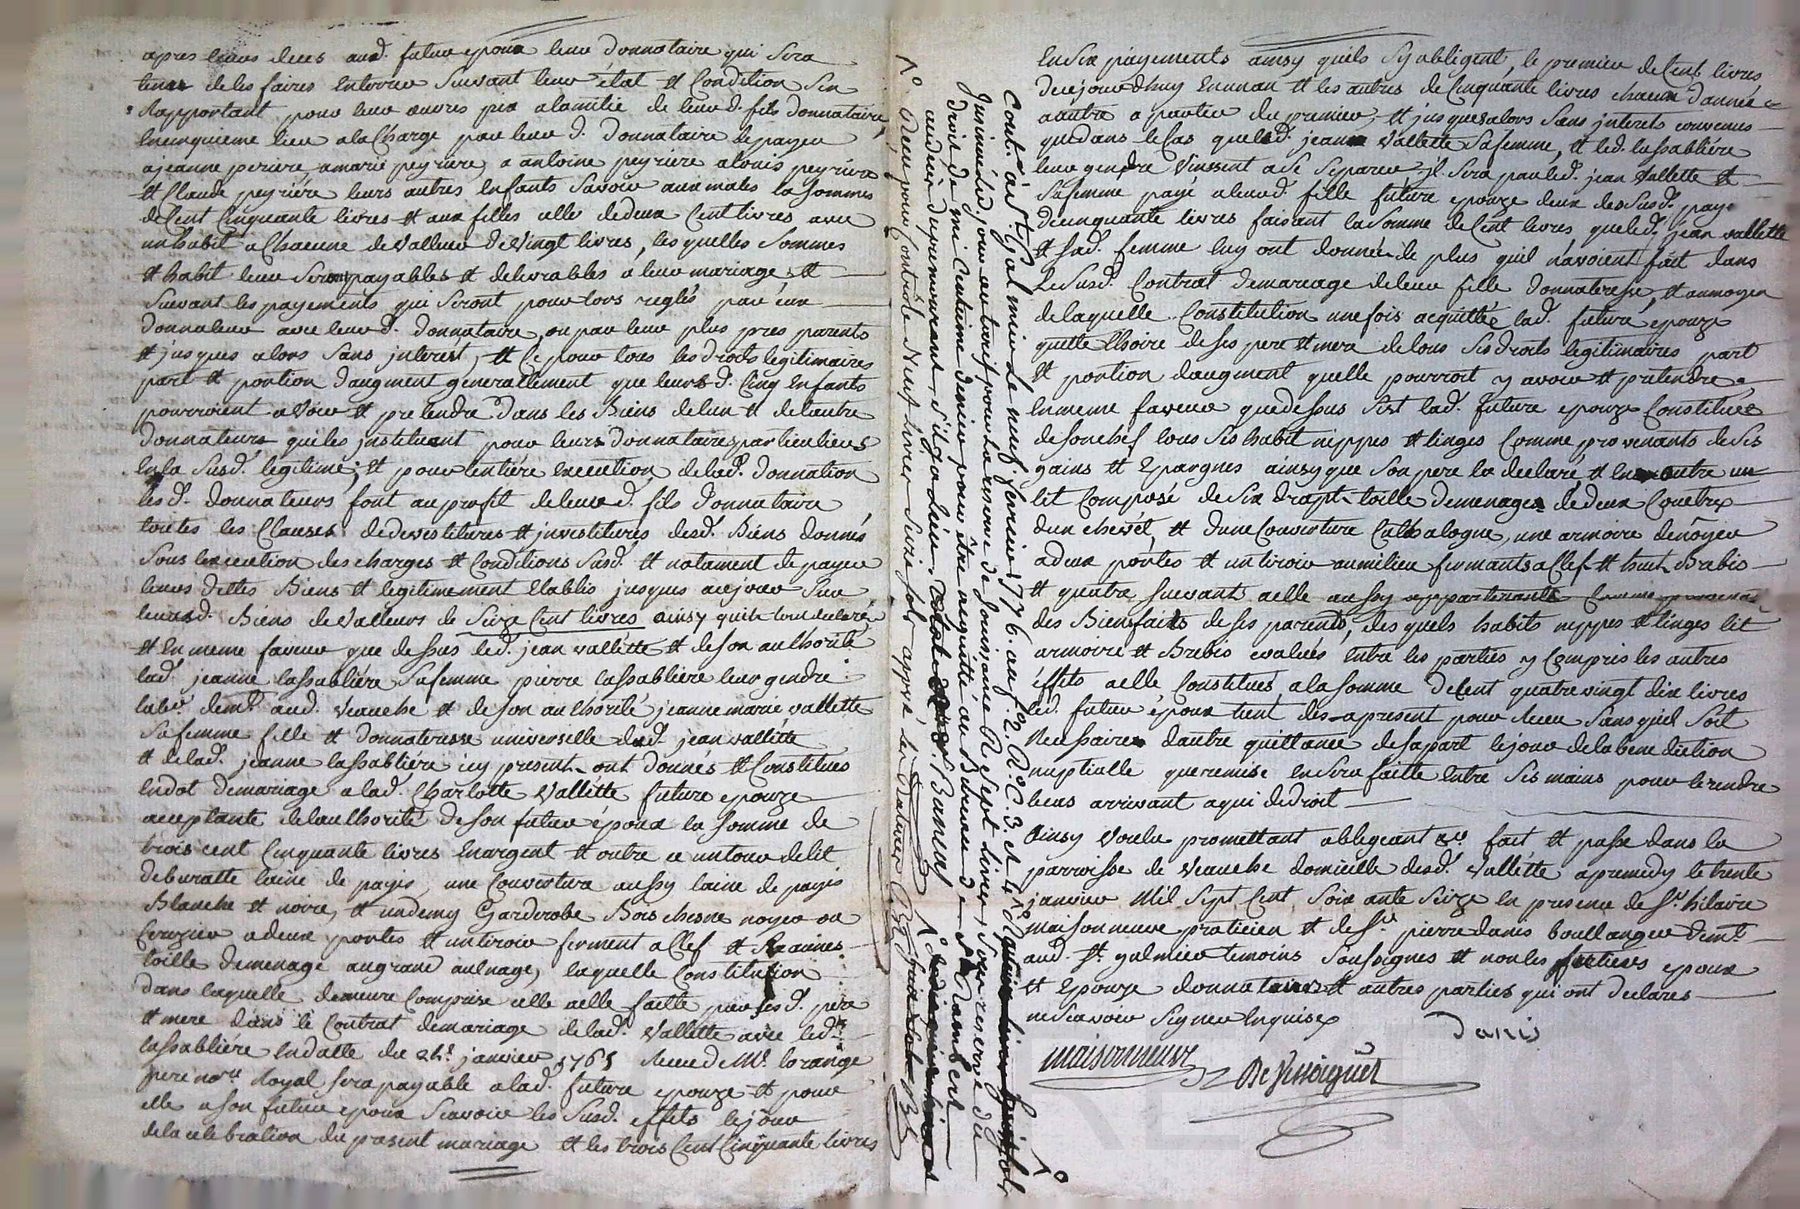 apres leurs deces aud. futur epoux leur donnataire qui sera
tenu de les faires enterrer suivant leur état et condition sen
rapportant pour leur œuvres pix a lamitié de leur d. fils donnataire,
encinquieme lieu ala charge par leur d. donnataire de payer
a jeanne periere, a marie peyriere, a antoine peyriere a louis peyriere
et Claude peyriére leurs autres enfants savoir aux males la sommes
de Cent Cinquante livres et aux filles celle de deux Cent livres avec
un habit a Chacune de valleur de vingt livres, les quelles sommes
et habit leur seront payables et delivrables a leur mariage et
suivant les payements qui seront pour lors reglés par eux
donnateur avec leur d. donnataire, ou par leur plus pres parents
et jusques alors sans interest, et ce pour tous les droits legitimaires
part et portion daugment generallement que leurs d. Cinq enfants
pourroient avoir et pretendre dans les Biens de lun et de lautre
donnateurs qui les instituent pour leurs donnataires particuliers
en la susd. legitime; et pour lentiére execution de lad. donnation
les d. donnateurs font au profit de leur d. fils donnataire
toutes les Clauses de devestitures et jnvestitures desd. Biens donnés
sous lexecution des charges et Conditions susd. et notament de payer
leurs dettes Biens et legitimement etablis jusques a ce jour sur
leursd. Biens de valleurs de seize Cent livres ainsy quils lont declaré
et en meme faveur que dessus led. jean vallétte et de son authorité
lad. jeanne lassabliére sa femme pierre lassabliere leur gendre
lab.r demt. aud. veauche et de son authorité jeanne marie vallette
sa femme fille et donnateresse universelle dud. jean vallétte
et de lad. jeanne lassabliére icy present ont donnés et Constitués
en dot de mariage a lad. Charlotte valléttte future epouze
acceptante de lauthorité de son futur époux la somme de
trois cent Cinquante livres en argent et outre ce un tour de lit
de buratte laine de payis, une Couverture aussy laine de payis
Blanche et noire, et un demy Garderobe Bois chesne noyer ou
Cerizier a deux portes et un tiroir ferment a Clef et
toille de menage au grand aulnage, laquelle Constitution
dans laquelle demeure comprise celle a elle faitte par ses d. pere
et mere dans le Contrat de mariage de lad. vallette avec led.
lassabliere en datte du 24e. janvier 1765 receu de Me. lorange
pere nore. Royal sera payable a lad. future epouze et pour
elle a son futur epoux scavoir les susd. effets le jour
de la celebration du present mariage et les trois Cent Cinquante livres
ro. Receu pour controle neuf livres seize sols
Cont. à St. Galmier le neuf fevrier 1776. au fo. 2. Ro. C. 3. et 4.
Insinué led. jour au tarif pour la reserve de jouissance Receu sept livres, sous reserve du
droit de mi Centieme denier pour être acquitté au Bureau de St. Rambert
au deces du survivant s'il y a lieu.
en six payements ainsy quils sy obligent, le premier de Cent livres
de ce jourdhuy en un an et les autres de Cinquante livres chacun dannée
a autre a partir du premier, et jusques alors sans interets convenus
que dans le Cas que led. jean vallette sa femme, et led. lassabliére
leur gendre vinssent a se separer, il sera par led. jean vallette et
sa femme payé a leur d. fille future epouze deux des susd. paye.
de cinquante livres faisant la somme de Cent livres que led. jean vallette
et sad. femme luy ont donnée de plus quil n'avoient fait dans
le susd. Contrat de mariage de leur fille donnateresse, et au moyen
de laquelle Constitution une fois acquittée lad. future epouze
quitte lhoire de ses pere et mere de tous ses droits legitimaires part
et portion daugment quelle pourroit y avoir et pretendre
en meme faveur que dessus sest lad. future epouze Constituée
de son chef tous ses habit nippes et linges comme provenants de ses
gains et epargnes ainsy que son pere la declaré, et en outre un
lit composé de six drapt toille de menage de deux Couetre
dun chevét, et dune Couverture Cathalogne, une armoire de noyer
a deux portes et un tiroir au milieu fermants a Clef et huit Brebis
et quatre suivants a elle aussy appartenants Comme provenat
des Bienfaits de ses parents, des quels habits nippes et linges lit
armoire et Brebis evalués entre les parties y compris les autres
éffets a elle Constitués a la somme de Cent quatre vingt dix livres
led. futur epoux tient dés apresent pour receu sans quil soit
necessaire dautre quittance de sa part le jour de la bene diction
nuptialle que remise en sera faitte entre ses mains pour le rendre
le cas arrivant a qui de droit
Ainsy voulu promettant obligeant &a. fait et passé dans la
parroisse de veauche domicille desd. vallétte apremidy le trente
janvier mil sept Cent soixante seize en presence de sr. hilaire
maisonneuve praticien et de sr. pierre danis boullanger demt.
aud. st. galmier temoins soussignes et non les futures epoux
et epouze donnataires et autres parties qui ont declarés
ne scavoir signer enquis
Danis
maisonneuve